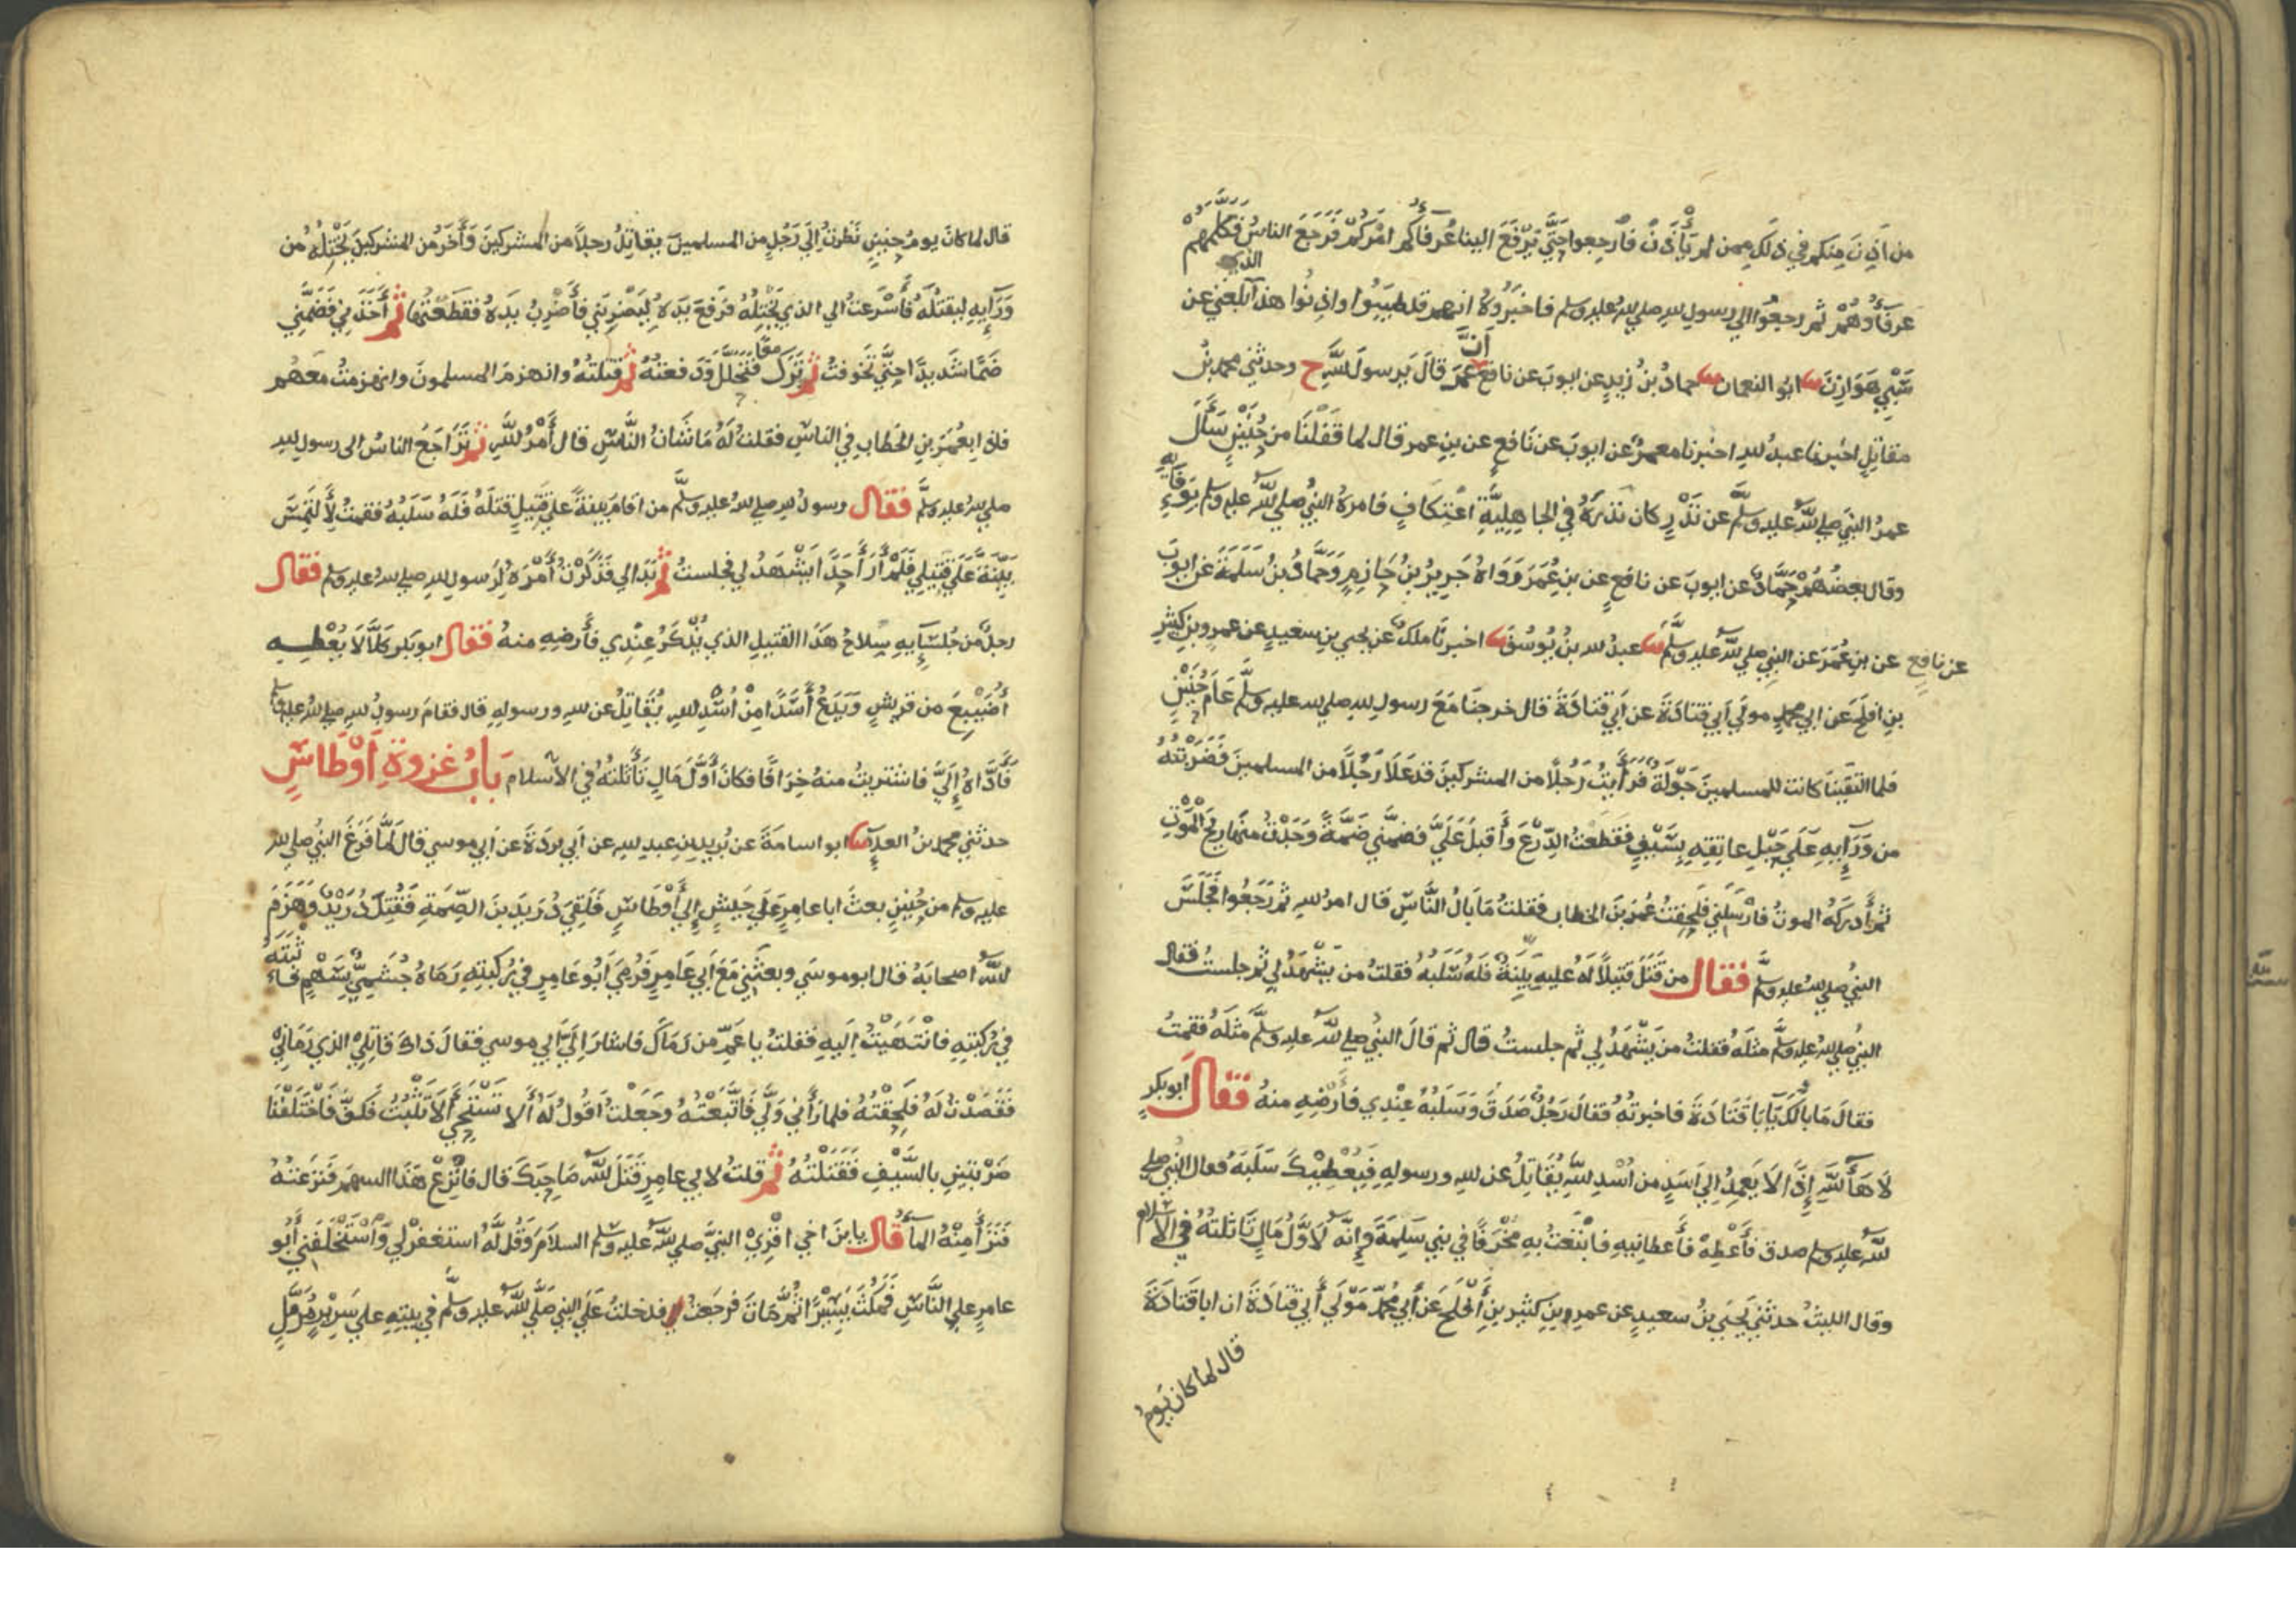 من أذن منكم في ذلك ممن لم يأذن فارجعوا حتى يرفع الينا عرفاؤكم امركم فرجع الناس فكلمهم
عرفاؤهم ثم رجعوا الي رسول لله صلي لله عليه وسلم فاخبروه انهم قد طيبوا واذنوا هذا الذي بلغني عن
سبي هوازن ثنا ابو النعمان ثنا حماد بن زيد عن ايوب عن نافع أن عمر قال يرسول لله ح وحدثني محمد بن
مقاتل اخبرنا عبد لله اخبرنا معمر عن ايوب عن نافع عن بن عمر قال لما قفلنا من حنين سأل
عمر النبي صلي لله عليه وسلم عن نذر كان نذره في الجاهلية اعتكاف فامره النبي صلي لله عليه وسلم بوفايه
وقال بعضهم حماد عن ايوب عن نافع عن بن عمر ورواه جرير بن حازم وحماد بن سلمة عن ايوب
عن نافع عن بن عمر عن النبي صلي لله عليه وسلم ثنا عبد لله بن يوسف ثنا اخبرنا ملك عن يحيي بن سعيد عن عمرو بن كثير
بن افلح عن ابي محمد مولي أبي قتادة عن أبي قتادة قال خرجنا مع رسول لله صلي لله عليه وسلم عام حنين
فلما التقينا كانت للمسلمين جولة فرأيت رجلا من المشركين قد علا رجلا من المسلمين فضربته
من ورآيه علي حبل عاتقه بسيف فقطعت الدرع وأقبل علي فضمني ضمة وجدت منها ريح الموت
ثم أدركه الموت فأرسلني فلحقت عمر بن الخطاب فقلت ما بال الناس قال امر لله ثم رجعوا فجلس
النبي صلي لله عليه وسلم فقال من قتل قتيلا له عليه بينة فله سلبه فقلت من يشهد لي ثم جلست فقال
النبي صلي لله عليه وسلم مثله فقلت من يشهد لي ثم جلست قال ثم قال النبي صلي لله عليه وسلم مثله فقمت
فقال ما بالك يابا قتادة فاخبرته فقال رجل صدق وسلبه عندي فأرضه منه فقال ابو بكر
لا ها لله إذا لا يعمد إلي اسد من أسد لله يقاتل عن لله ورسوله فيعطيك سلبه فقال النبي صلي
لله عليه وسلم صدق فأعطه فأعطانيه فابتعت به مخرفا في بني سلمة وإنه لاول مال تاثلته في الاسلام
وقال الليث حدثني يحيي بن سعيد عن عمرو بن كثير بن أفلح عن أبي محمد مولي أبي قتادة ان ابا قتادة
قال لما كان يوم
قال لما كان يوم حنين نظرت إلي رجل من المسلمين يقاتل رجلا من المشركين وأخر من المشركين يختله من
ورآيه ليقتله فأسرعت الي الذي يختله فرفع يده ليضربني فأضرب يده فقطعتها ثم أخذني فضمني
ضما شديدا حتي تخوفت ثم ترك فتحلل ودفعته ثم قتلته وانهزم المسلمون وانهزمت معهم
فاذا بعمر بن الخطاب في الناس فقلت له ما شان الناس قال أمر لله ثم تراجع الناس الى رسول لله
صلي لله عليه وسلم فقال رسول لله صلي لله عليه وسلم من اقام بينة علي قتيل قتله فله سلبه فقمت لألتمس
بينة علي قتيلي فلم أر أحدا يشهد لي فجلست ثم بدا لي فذكرت أمره لرسول لله صلي لله عليه وسلم فقال
رجل من جلسآيه سلاح هذا القتيل الذي يذكر عندي فأرضه منه فقال ابو بكر كلا لا يعطيه
أضيبع من قريش ويدع أسدا من أسد لله يقاتل عن لله ورسوله قال فقام رسول لله صلي لله عليه وسلم
فأداه إلي فاشتريت منه خرافا فكان أول مال تأثلته في الاسلام باب غزوة أوطاس
حدثني محمد بن العلآء ثنا ابو اسامة عن بريد بن عبد لله عن أبي بردة عن أبي موسي قال لما فرغ النبي صلي لله
عليه وسلم من حنين بعث ابا عامر علي جيش إلي أوطاس فلقي دريد بن الصمة فقتل دريد وهزم
لله اصحابه قال ابو موسي وبعثني مع أبي عامر فرمي أبو عامر في ركبته رماه جشمي بسهم فاثبته
في ركبته فانتهيت إليه فقلت يا عم من رماك فاشار إلي أبي موسي فقال ذاك قاتلي الذي رماني
فقصدت له فلحقته فلما رأني ولي فاتبعته وجعلت اقول له ألا تستحي ألا تثبت فكف فاختلفنا
ضربتين بالسيف فقتلته ثم قلت لابي عامر قتل لله صاحبك قال فانزع هذا السهم فنزعته
فنزأ منه المآء قال يا بن اخي اقري النبي صلي لله عليه وسلم السلام وقل له استغفر لي واستخلفني أبو
عامر علي الناس فمكث يسيرا ثم مات فرجعت فدخلت علي النبي صلي لله عليه وسلم في بيته علي سرير مرمل